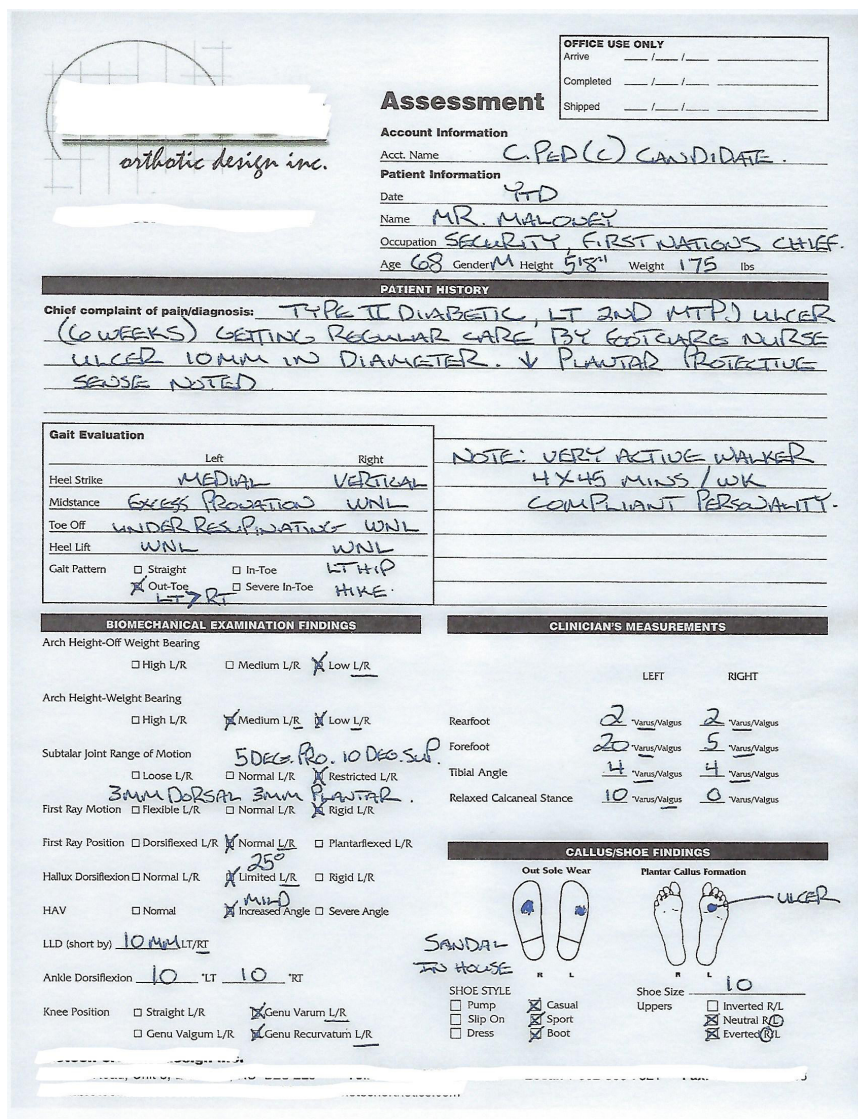 OFFICE USE ONLY
Arrive ___/___/___
Completed ___/___/___
Shipped ___/___/___
orthotic design inc.
Assessment
Account Information
Acct. Name C.PED(C) CANDIDATE.
Patient Information
Date YTD
Name MR. MALONEY
Occupation SECURITY, FIRST NATIONS CHIEF.
Age 68 Gender M Height 5'8" Weight 175 lbs
PATIENT HISTORY
Chief complaint of pain/diagnosis: TYPE II DIABETIC, LT 2ND MTPJ ULCER
(6 WEEKS) GETTING REGULAR CARE BY FOOTCARE NURSE
ULCER 10MM IN DIAMETER. ↓ PLANTAR PROTECTIVE
SENSE NOTED
Gait Evaluation
Left Right
Heel Strike MEDIAL VERTICAL
Midstance EXCESS PRONATION WNL
Toe Off UNDER RESUPINATING WNL
Heel Lift WNL WNL
Gait Pattern ☐ Straight ☐ In-Toe LT HIP
☒ Out-Toe ☐ Severe In-Toe HIKE.
LT > RT
NOTE: VERY ACTIVE WALKER
4 X 45 MINS / WK
COMPLIANT PERSONALITY.
BIOMECHANICAL EXAMINATION FINDINGS
Arch Height-Off Weight Bearing
☐ High L/R ☐ Medium L/R ☒ Low L/R
Arch Height-Weight Bearing
☐ High L/R ☒ Medium L/R ☒ Low L/R
Subtalar Joint Range of Motion 5 DEG. PRO. 10 DEG. SUP.
☐ Loose L/R ☐ Normal L/R ☒ Restricted L/R
3MM DORSAL 3MM PLANTAR.
First Ray Motion ☐ Flexible L/R ☐ Normal L/R ☒ Rigid L/R
First Ray Position ☐ Dorsiflexed L/R ☒ Normal L/R ☐ Plantarflexed L/R
25°
Hallux Dorsiflexion ☐ Normal L/R ☒ Limited L/R ☐ Rigid L/R
MILD
HAV ☐ Normal ☒ Increased Angle ☐ Severe Angle
LLD (short by) 10 MM LT/RT
Ankle Dorsiflexion 10 °LT 10 °RT
Knee Position ☐ Straight L/R ☒ Genu Varum L/R
☐ Genu Valgum L/R ☒ Genu Recurvatum L/R
CLINICIAN'S MEASUREMENTS
LEFT RIGHT
Rearfoot 2 °Varus/Valgus 2 °Varus/Valgus
Forefoot 20 °Varus/Valgus 5 °Varus/Valgus
Tibial Angle 4 °Varus/Valgus 4 °Varus/Valgus
Relaxed Calcaneal Stance 10 °Varus/Valgus 0 °Varus/Valgus
CALLUS/SHOE FINDINGS
Out Sole Wear Plantar Callus Formation
ULCER
R L R L
SANDAL
IN HOUSE
SHOE STYLE
☐ Pump ☒ Casual
☐ Slip On ☒ Sport
☐ Dress ☒ Boot
Shoe Size 10
Uppers ☐ Inverted R/L
☒ Neutral R/L
☒ Everted R/L